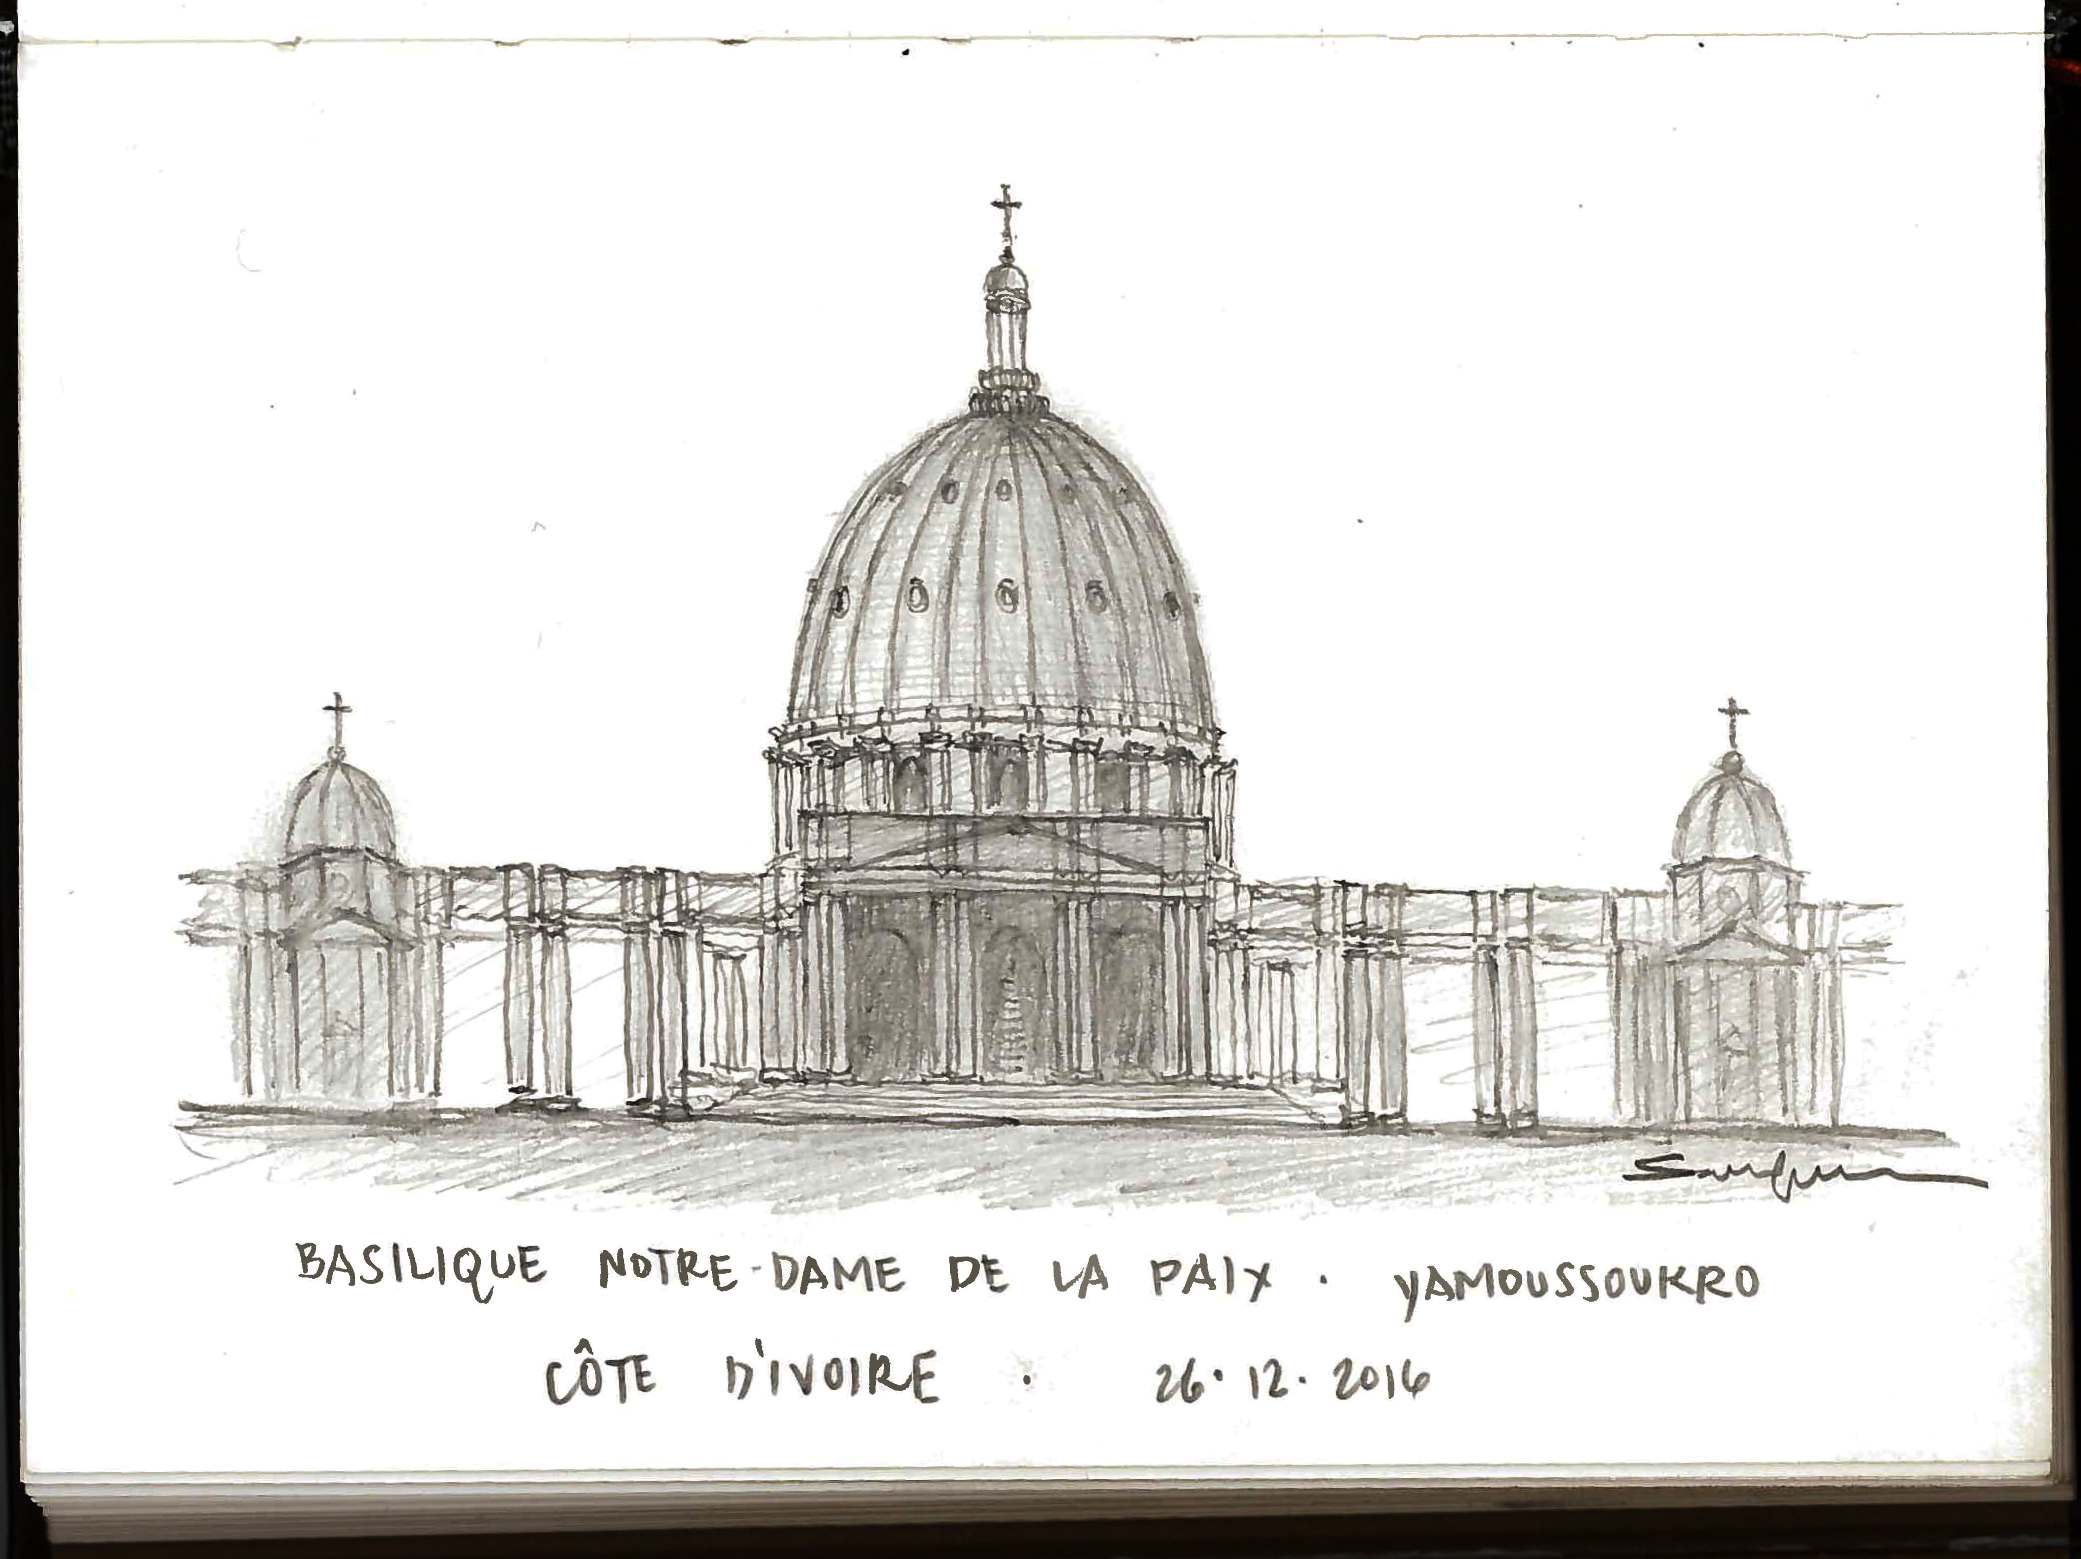 BASILIQUE NOTRE-DAME DE LA PAIX . YAMOUSSOUKRO
CÔTE D'IVOIRE . 26.12.2016